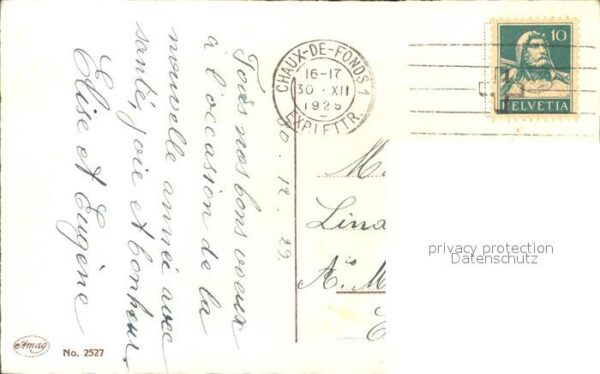 Tous nos bons voeux
à l'occasion de la
nouvelle année avec
santé, joie et bonheur,
Elise et Eugène
30. 12. 29.
CHAUX-DE-FONDS 1
16-17
30. XII
1929
EXP. LETTR.
10
HELVETIA
M
Lina
A. M
privacy protection
Datenschutz
Amag
No. 2527